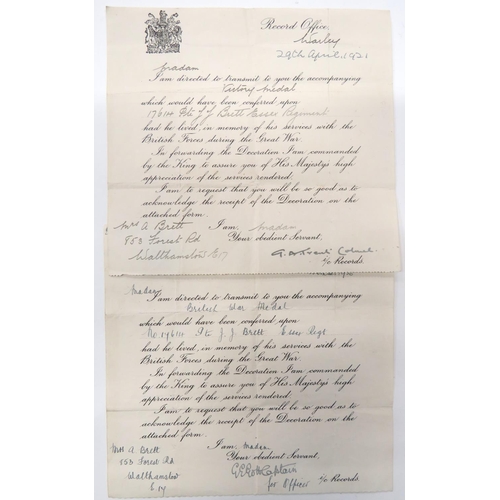 Record Office,
Warley
29th April. 1921
Madam
I am directed to transmit to you the accompanying
Victory Medal
which would have been conferred upon
17614 Pte J J Brett Essex Regiment
had he lived, in memory of his services with the
British Forces during the Great War.
In forwarding the Decoration I am commanded
by the King to assure you of His Majesty's high
appreciation of the services rendered.
I am to request that you will be so good as to
acknowledge the receipt of the Decoration on the
attached form.
Mrs A Brett
I am, Madam
853 Forest Rd
Your obedient Servant,
Walthamstow E17
Colonel
i/c Records.
Madam
I am directed to transmit to you the accompanying
British War Medal
which would have been conferred upon
No 17614 Pte J. J. Brett Essex Regt
had he lived, in memory of his services with the
British Forces during the Great War.
In forwarding the Decoration I am commanded
by the King to assure you of His Majesty's high
appreciation of the services rendered.
I am to request that you will be so good as to
acknowledge the receipt of the Decoration on the
attached form.
I am Madam
Mrs A. Brett
Your obedient Servant,
853 Forest Rd
Captain
Walthamstow
for Officer i/c Records.
E 17